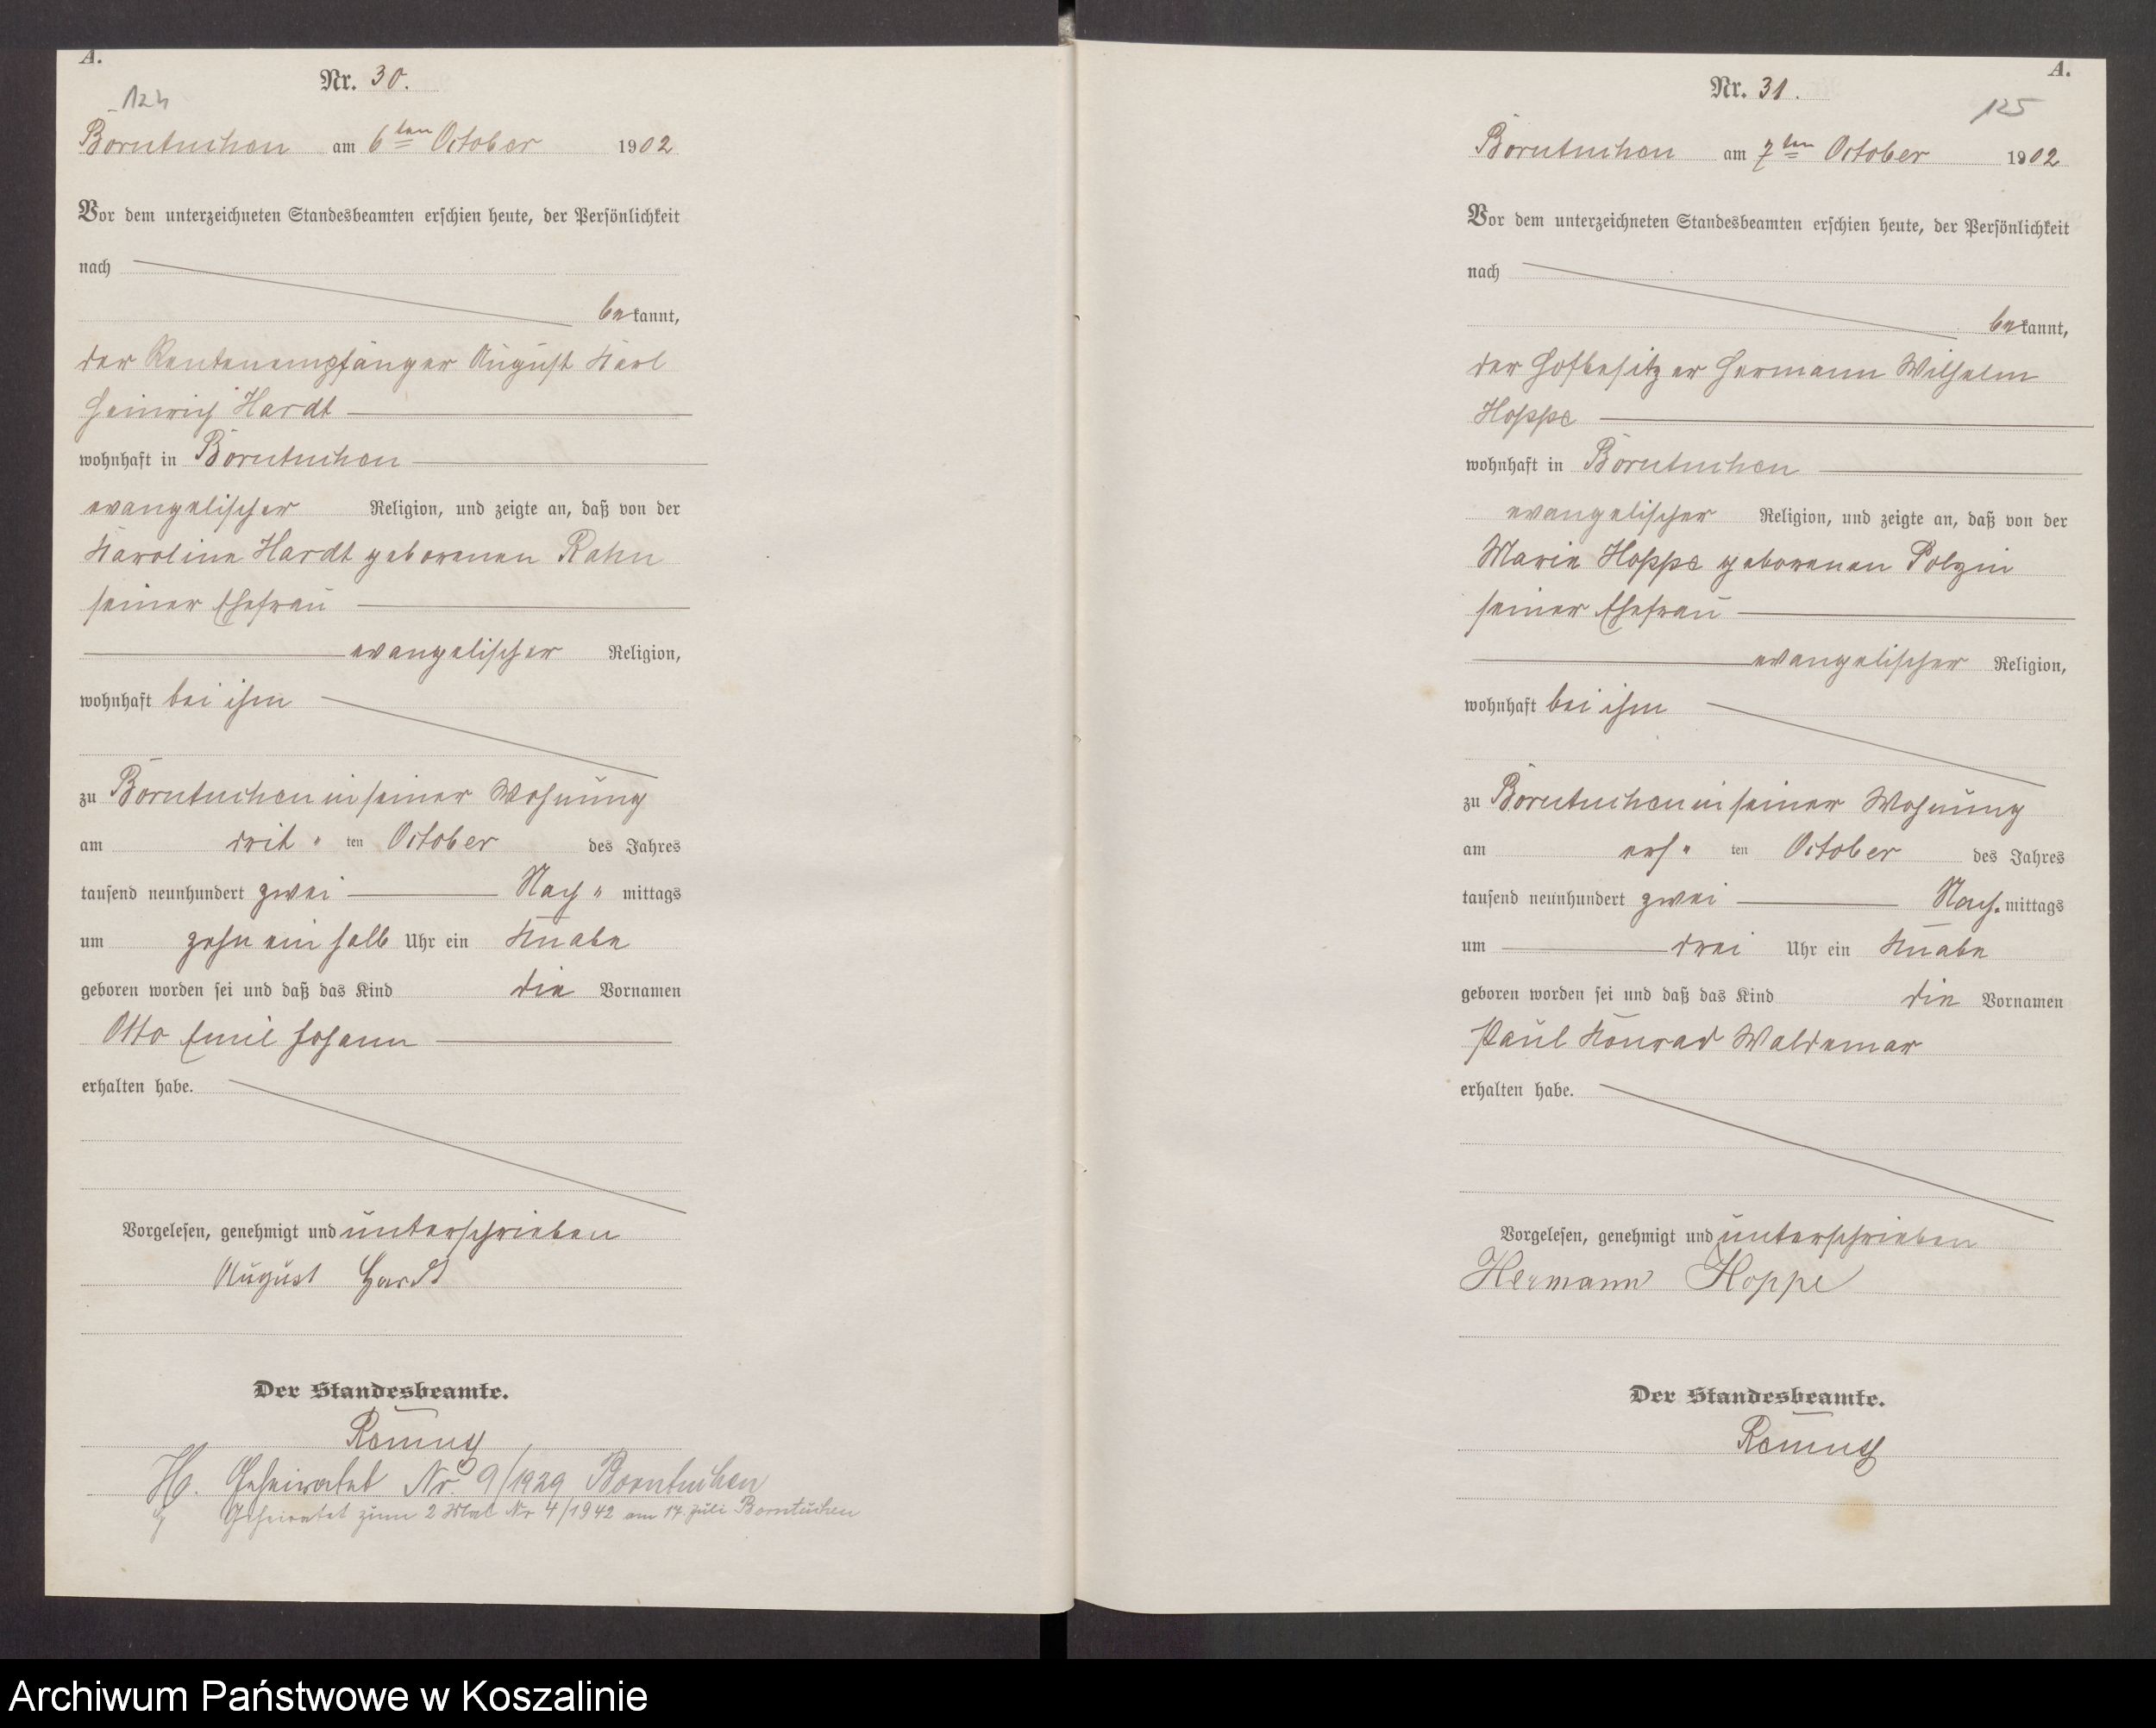 A.
Nr. 30.
124
Borntuchen am 6ten October 1902
Vor dem unterzeichneten Standesbeamten erschien heute, der Persönlichkeit
nach
bekannt,
der Rentenempfänger August Karl
Heinrich Hardt
wohnhaft in Borntuchen
evangelischer Religion, und zeigte an, daß von der
Karoline Hardt geborenen Rahn
seiner Ehefrau
evangelischer Religion,
wohnhaft bei ihm
zu Borntuchen in seiner Wohnung
am drit " ten October des Jahres
tausend neunhundert zwei Nach " mittags
um zehn ein halb Uhr ein Knabe
geboren worden sei und daß das Kind die Vornamen
Otto Emil Johann
erhalten habe.
Vorgelesen, genehmigt und unterschrieben
August Hardt
Der Standesbeamte.
H. Geheiratet Nr. 9/1929 Borntuchen
Geheiratet zum 2 Mal Nr 4/1942 am 17. Juli Borntuchen
A.
Nr. 31.
125
Borntuchen am 7ten October 1902
Vor dem unterzeichneten Standesbeamten erschien heute, der Persönlichkeit
nach
bekannt,
der Hofbesitzer Hermann Wilhelm
Hoppe
wohnhaft in Borntuchen
evangelischer Religion, und zeigte an, daß von der
Marie Hoppe geborenen Polzin
seiner Ehefrau
evangelischer Religion,
wohnhaft bei ihm
zu Borntuchen in seiner Wohnung
am ers " ten October des Jahres
tausend neunhundert zwei Nach. mittags
um drei Uhr ein Knabe
geboren worden sei und daß das Kind die Vornamen
Paul Konrad Waldemar
erhalten habe.
Vorgelesen, genehmigt und unterschrieben
Hermann Hoppe
Der Standesbeamte.
Archiwum Państwowe w Koszalinie